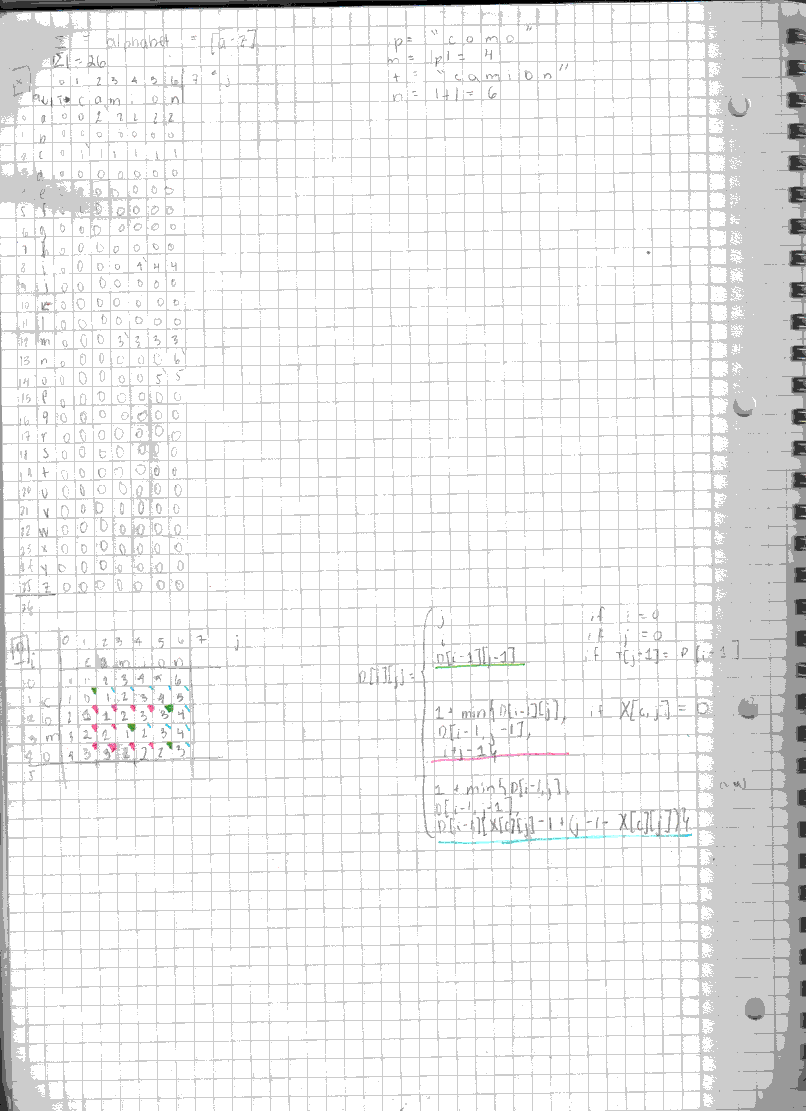 Σ = alphabet = [a-z]
|Σ| = 26
p = "como"
m = |p| = 4
t = "camion"
n = |t| = 6
[X] 0 1 2 3 4 5 6 7 j
c a m i o n
0 a 0 0 2 2 2 2 2
1 b 0 0 0 0 0 0 0
2 c 0 1 1 1 1 1 1
d 0 0 0 0 0 0 0
e 0 0 0 0
5 f 0 0 0 0 0 0
6 g 0 0 0 0 0 0 0
7 h 0 0 0 0 0 0 0
8 i 0 0 0 0 4 4 4
9 j 0 0 0 0 0 0 0
10 k 0 0 0 0 0 0 0
11 l 0 0 0 0 0 0 0
12 m 0 0 0 3 3 3 3
13 n 0 0 0 0 0 0 6
14 o 0 0 0 0 0 5 5
15 p 0 0 0 0 0 0 0
16 q 0 0 0 0 0 0 0
17 r 0 0 0 0 0 0 0
18 s 0 0 0 0 0 0 0
19 t 0 0 0 0 0 0 0
20 u 0 0 0 0 0 0 0
21 v 0 0 0 0 0 0 0
22 w 0 0 0 0 0 0 0
23 x 0 0 0 0 0 0 0
24 y 0 0 0 0 0 0 0
25 z 0 0 0 0 0 0 0
26
[D] 0 1 2 3 4 5 6 7 j
i c a m i o n
0 0 1 2 3 4 5 6
1 c 1 0 1 2 3 4 5
2 o 2 1 1 2 3 3 4
3 m 3 2 2 1 2 3 4
4 o 4 3 3 2 2 2 3
5
D[i][j] =
j if i = 0
i if j = 0
D[i-1][j-1] if T[j-1] = P[i-1]
1 + min{D[i-1][j], if X[c,j] = 0
D[i-1, j-1],
i+j-1}
1 + min{D[i-1,j],
D[i-1,j-1]
D[i-1][X[c][j]-1+(j-1-X[c][j])}